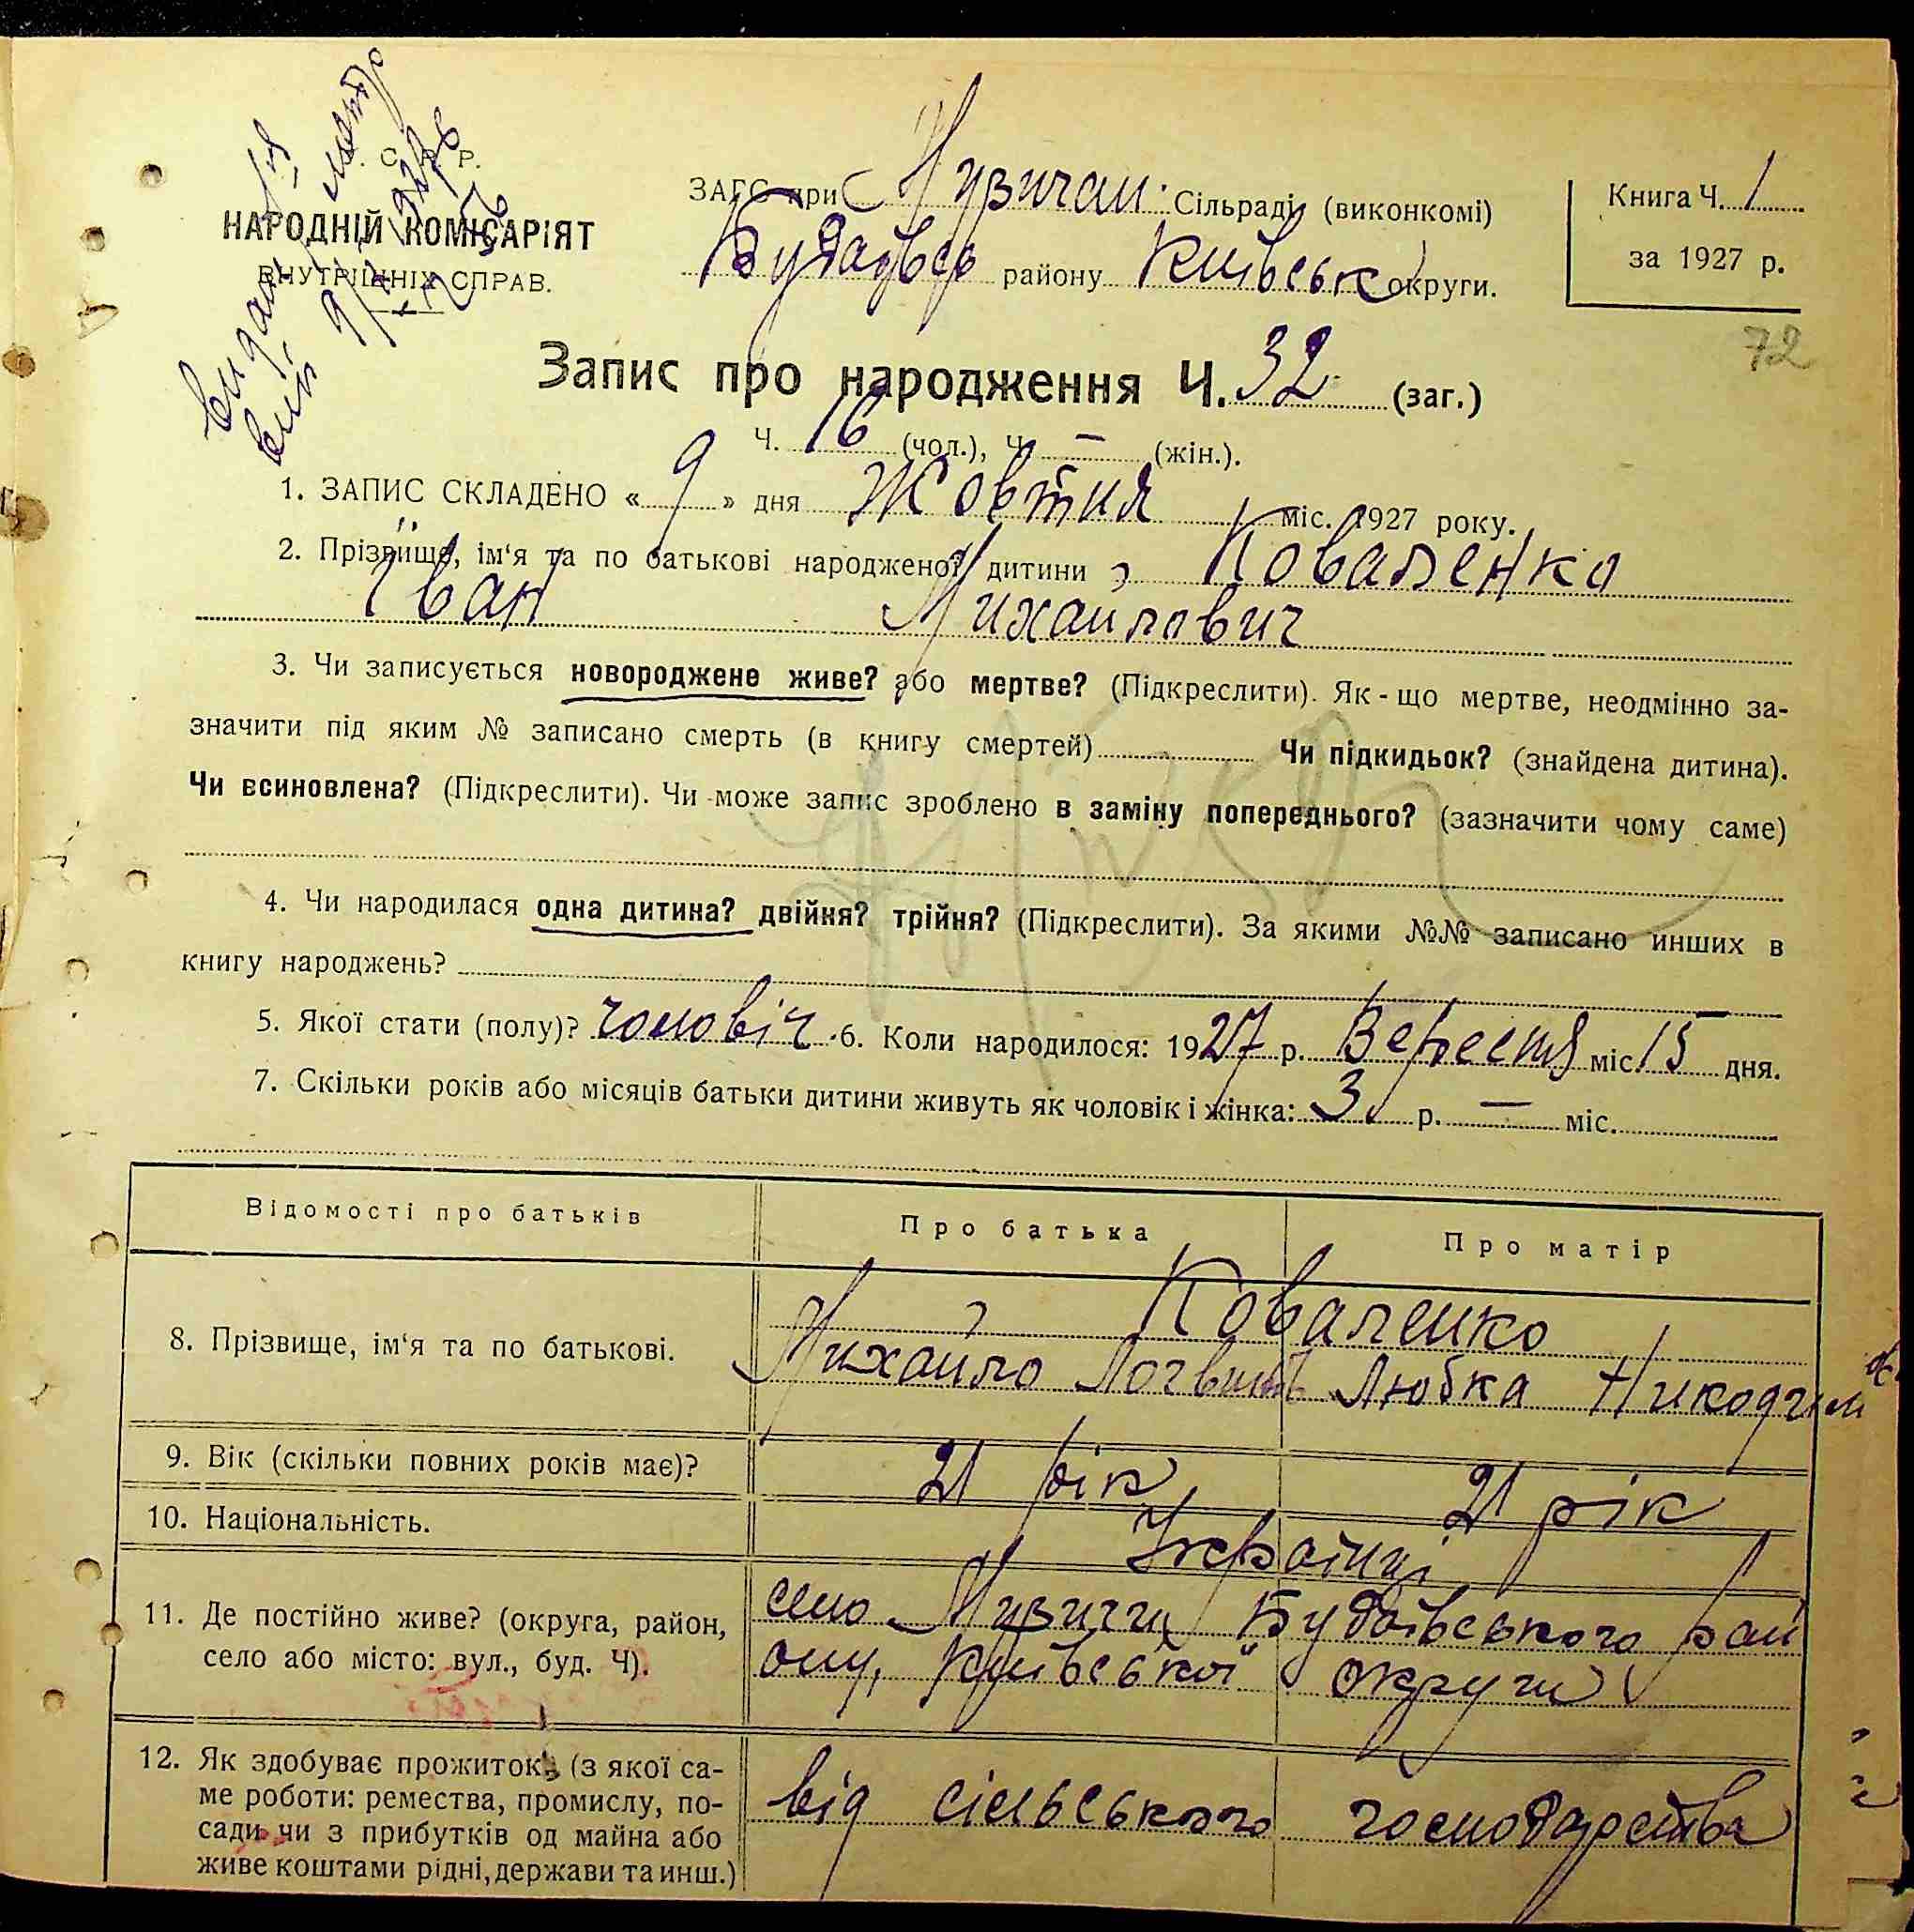 С. Р. Р.
НАРОДНІЙ КОМІСАРІЯТ
ВНУТРІШНІХ СПРАВ.
ЗАГС при Музичан. Сільраді (виконкомі)
району Київськ округи.
Книга Ч. 1
за 1927 р.
72
Запис про народження Ч. 32 (заг.)
Ч. 16 (чол.), Ч. — (жін.).
1. ЗАПИС СКЛАДЕНО « 9 » дня Жовтня міс. 1927 року.
2. Прізвище, ім'я та по батькові народженої дитини Коваленко
Іван Михайлович
3. Чи записується новороджене живе? або мертве? (Підкреслити). Як-що мертве, неодмінно за-
значити під яким № записано смерть (в книгу смертей) Чи підкидьок? (знайдена дитина).
Чи всиновлена? (Підкреслити). Чи може запис зроблено в заміну попереднього? (зазначити чому саме)
4. Чи народилася одна дитина? двійня? трійня? (Підкреслити). За якими №№ записано инших в
книгу народжень?
5. Якої стати (полу)? чоловіч. 6. Коли народилося: 1927 р. Вересня міс. 15 дня.
7. Скільки років або місяців батьки дитини живуть як чоловік і жінка: 3 р. — міс.
Відомості про батьків Про батька Про матір
8. Прізвище, ім'я та по батькові. Коваленко
Михайло Любка Никодим
9. Вік (скільки повних років має)? 21 рік 21 рік
10. Національність. Українці
11. Де постійно живе? (округа, район, село Музичи Будаївського рай
село або місто: вул., буд. Ч). ону, Київської округи
12. Як здобуває прожиток (з якої са-
ме роботи: ремества, промислу, по-
сади чи з прибутків од майна або
живе коштами рідні, держави та инш.)
від сільського господарства